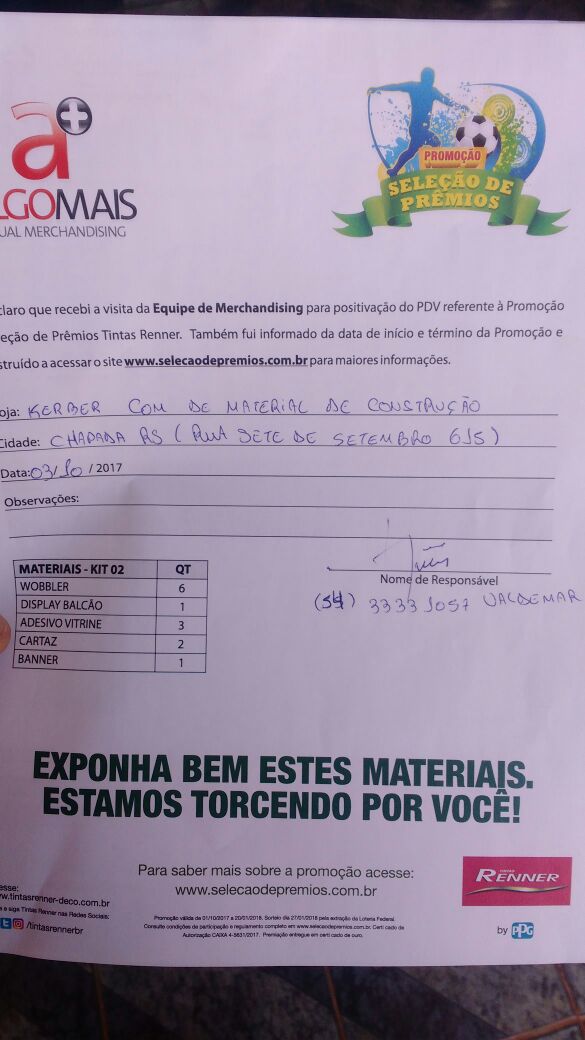 a+
LGOMAIS
UAL MERCHANDISING
PROMOÇÃO
SELEÇÃO DE
PRÊMIOS
claro que recebi a visita da Equipe de Merchandising para positivação do PDV referente à Promoção
eção de Prêmios Tintas Renner. Também fui informado da data de início e término da Promoção e
struído a acessar o site www.selecaodepremios.com.br para maiores informações.
oja: KERBER COM DE MATERIAL DE CONSTRUÇÃO
Cidade: CHAPADA RS (RUA SETE DE SETEMBRO 615)
Data: 03/10 / 2017
Observações:
MATERIAIS - KIT 02 QT
WOBBLER 6
DISPLAY BALCÃO 1
ADESIVO VITRINE 3
CARTAZ 2
BANNER 1
Nome de Responsável
(54) 3333 1057 VALDEMAR
EXPONHA BEM ESTES MATERIAIS.
ESTAMOS TORCENDO POR VOCÊ!
Para saber mais sobre a promoção acesse:
www.selecaodepremios.com.br
esse:
w.tintasrenner-deco.com.br
a e siga Tintas Renner nas Redes Sociais:
/tintasrennerbr
Promoção válida de 01/10/2017 a 20/01/2018. Sorteio dia 27/01/2018 pela extração da Loteria Federal.
Consulte condições de participação e regulamento completo em www.selecaodepremios.com.br. Certi cado de
Autorização CAIXA 4-5631/2017. Premiação entregue em certi cado de ouro.
TINTAS
RENNER
by PPG